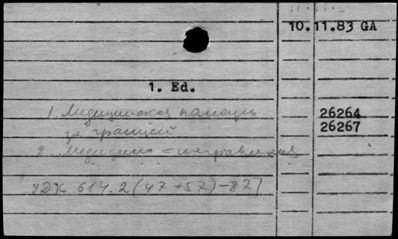 10.11.83 GA
1. Ed.
1. Медицинская помощь 26264
за границей 26267
2. Медицина -
УДК 614.2(47+57)-87]